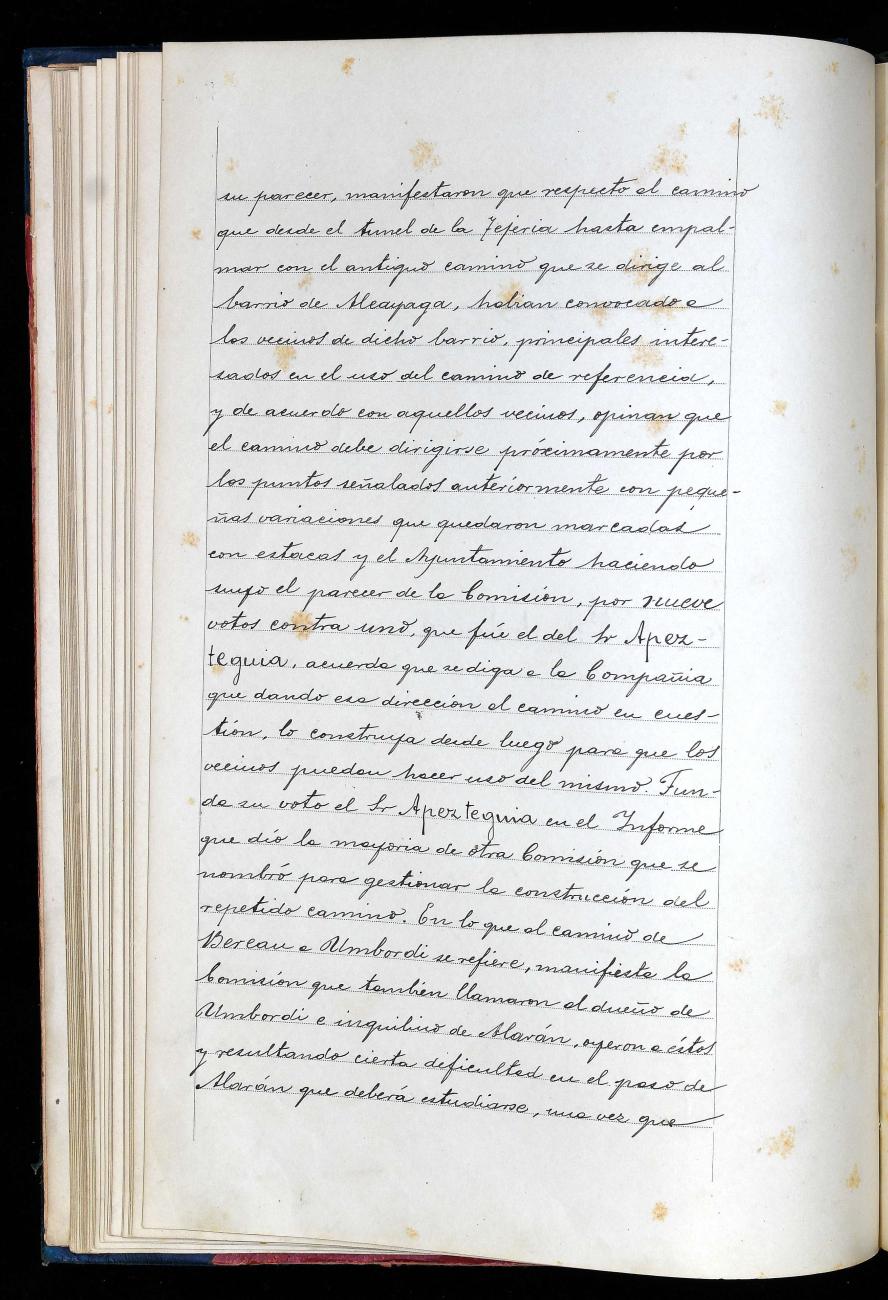 su parecer, manifestaron que respecto al camino
que desde el tunel de la Tejeria hasta empal-
mar con el antiguo camino que se dirige al
barrio de Alcayaga, habian convocado a
los vecinos de dicho barrio, principales intere-
sados en el uso del camino de referencia,
y de acuerdo con aquellos vecinos, opinan que
el camino debe dirigirse próximamente por
los puntos señalados anteriormente con peque-
ñas variaciones que quedaron marcadas
con estacas y el Ayuntamiento haciendo
suyo el parecer de la Comisión, por nueve
votos contra uno, que fué el del Sr Apez-
teguia, acuerda que se diga a la Compañia
que dando esa dirección al camino en cues-
tión, lo construya desde luego para que los
vecinos puedan hacer uso del mismo. Fun-
da su voto el Sr Apezteguia en el Informe
que dió la mayoria de otra Comisión que se
nombró para gestionar la construcción del
repetido camino. En lo que al camino de
Bereau a Umbordi se refiere, manifiesta la
Comisión que también llamaron al dueño de
Umbordi e inquilino de Alarán, oyeron a éstos
y resultando cierta dificultad en el paso de
Alarán que deberá estudiarse, una vez que